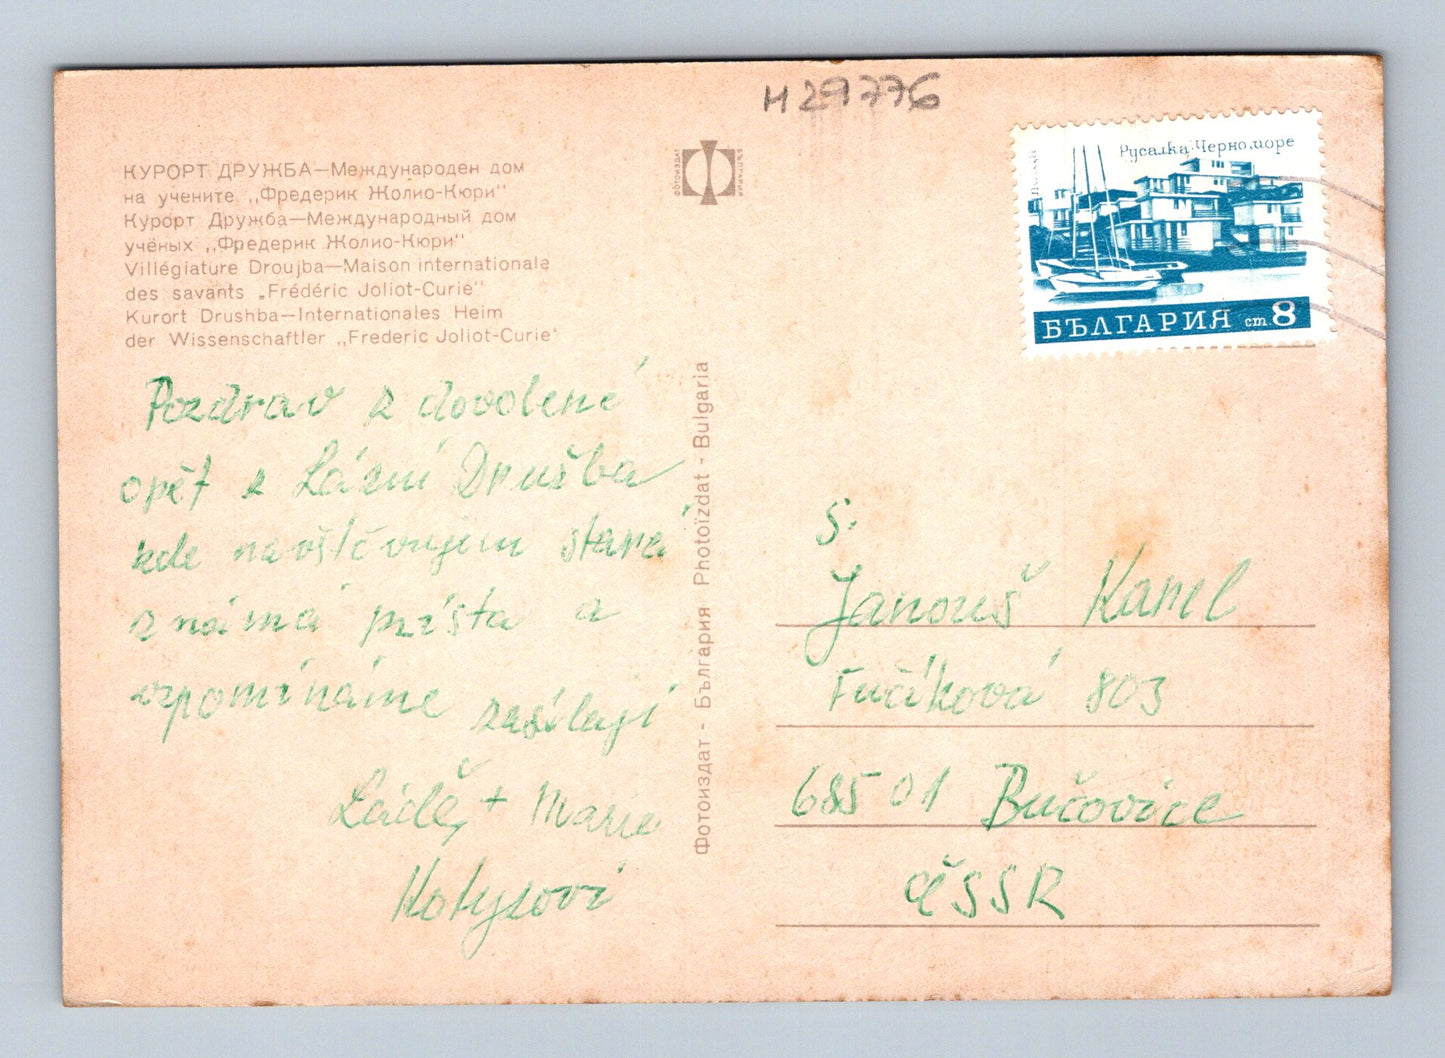 H 29776
КУРОРТ ДРУЖБА—Международен дом
на учените „Фредерик Жолио-Кюри"
Курорт Дружба—Международный дом
учёных „Фредерик Жолио-Кюри"
Villégiature Droujba—Maison internationale
des savants „Frédéric Joliot-Curie"
Kurort Drushba—Internationales Heim
der Wissenschaftler „Frederic Joliot-Curie'
ФОТОИЗДАТ
БЪЛГАРИЯ
Русалка Черно море
БЪЛГАРИЯ ст. 8
Pozdrav z dovolené
opět z Lázní Družba
kde navštěvujem stará
známá místa a
vzpomínáme zasílají
Láďa + Marie
Фотоиздат - България Photoizdat - Bulgaria
S.
Janouš Karel
Fučíková 803
685 01 Bučovice
ČSSR